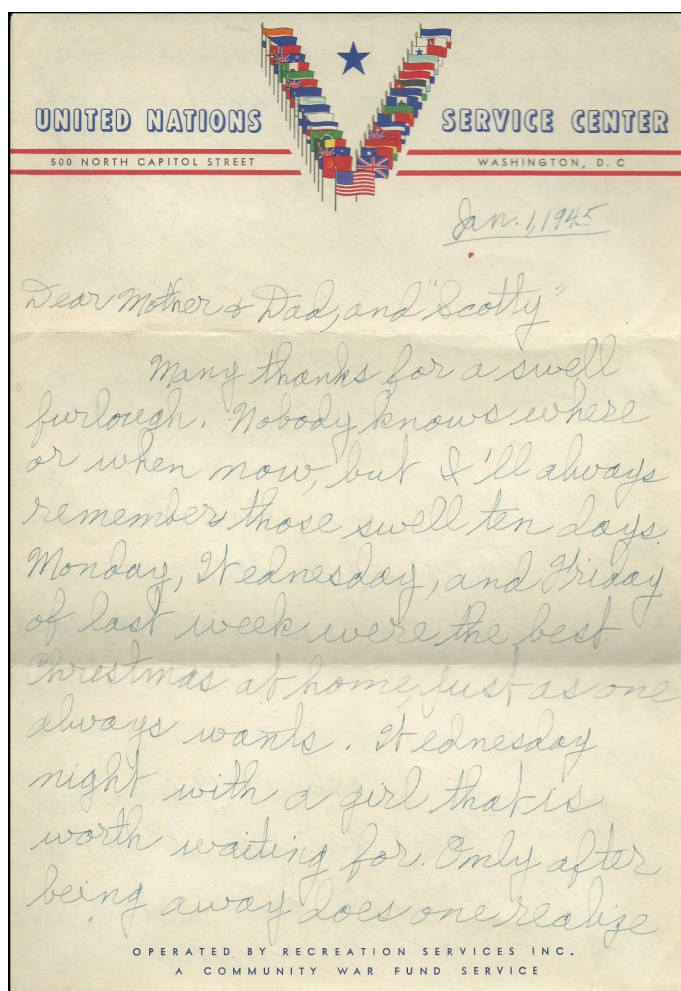 UNITED NATIONS SERVICE CENTER
500 NORTH CAPITOL STREET WASHINGTON, D. C
Jan. 1, 1945
Dear Mother & Dad, and "Scotty"
Many thanks for a swell
furlough. Nobody knows where
or when now, but I'll always
remember those swell ten days.
Monday, Wednesday, and Friday
of last week were the best.
Christmas at home, just as one
always wants. Wednesday
night with a girl that is
worth waiting for. Only after
being away does one realize
OPERATED BY RECREATION SERVICES INC.
A COMMUNITY WAR FUND SERVICE